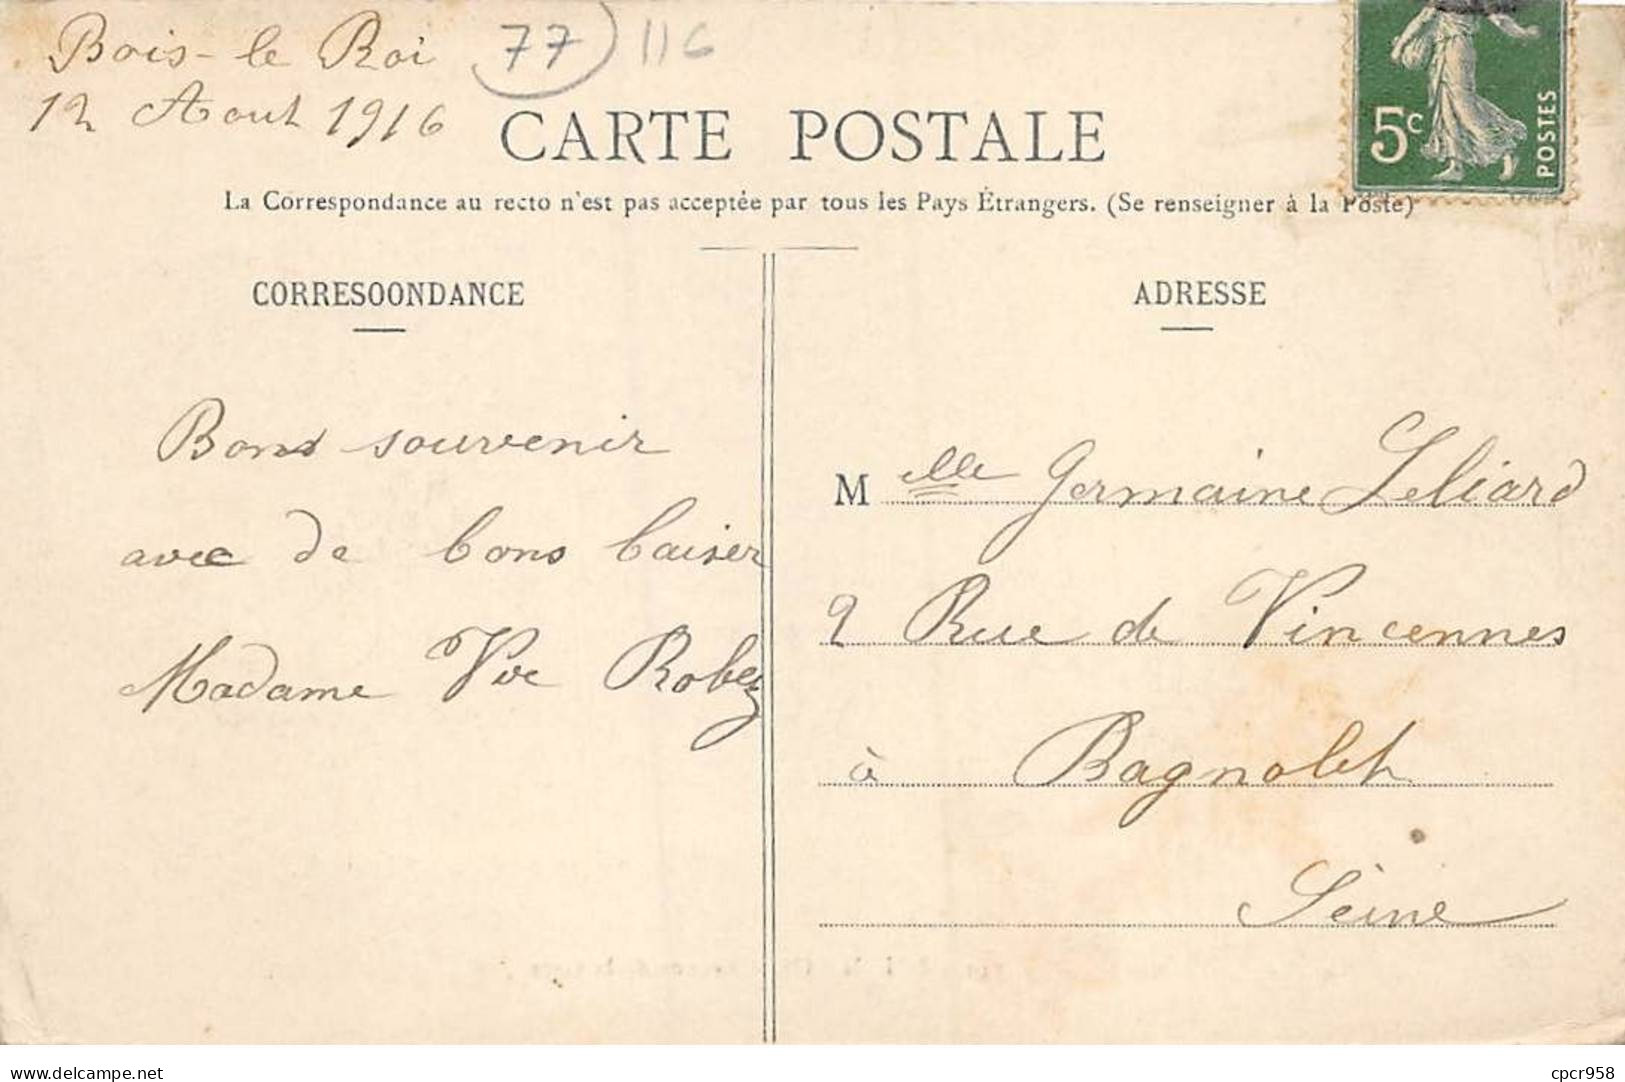 Bois-le Roi
12 Aout 1916
77 116
5c
POSTES
CARTE POSTALE
La Correspondance au recto n'est pas acceptée par tous les Pays Étrangers. (Se renseigner à la Poste)
CORRESOONDANCE
ADRESSE
Bons souvenir
avec de bons baiser
Madame Vve Robez
Melle Germaine Leliard
2 Rue de Vincennes
à Bagnolet
Seine
delcampe.net
cpcr958